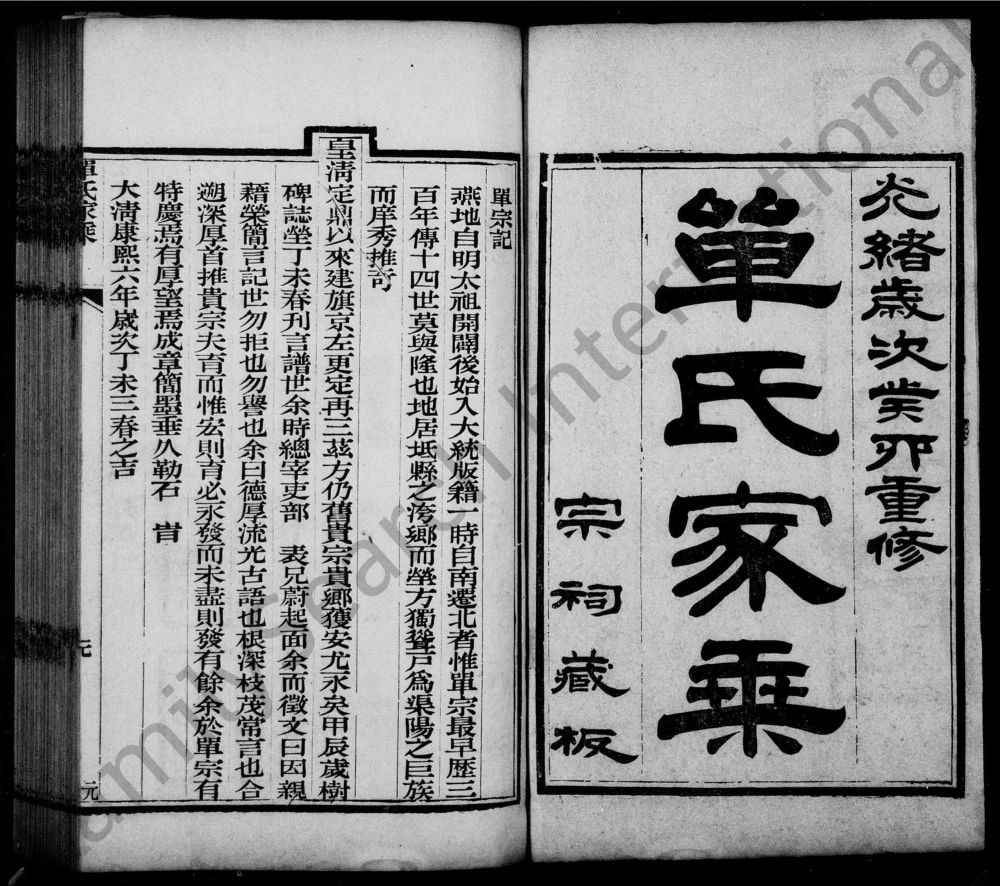 光緒歲次癸卯重修
單氏家乘
宗祠藏板
單宗記
燕地自明太祖開闢後始入大統版籍一時自南遷北者惟單宗最早歷三
百年傳十四世莫與隆也地居坻縣之洿鄉而塋方獨聳戸為渠陽之巨族
而庠秀推訶
皇清定鼎以來建旗京左更定再三茲方仍舊貴宗貴鄉獲安尤永矣甲辰歲樹
碑誌塋丁未春刊言譜世余時總宰吏部 表兄蔚起面余而徵文曰因親
藉榮簡言記世勿拒也勿譽也余曰德厚流光古語也根深枝茂常言也合
遡深厚首推貴宗夫育而惟宏則育必永發而未盡則發有餘余於單宗有
特慶焉有厚望焉成章簡墨垂久勒石 旹
大清康熙六年歲次丁未三春之吉
單氏家乘
元
元
FamilySearch International